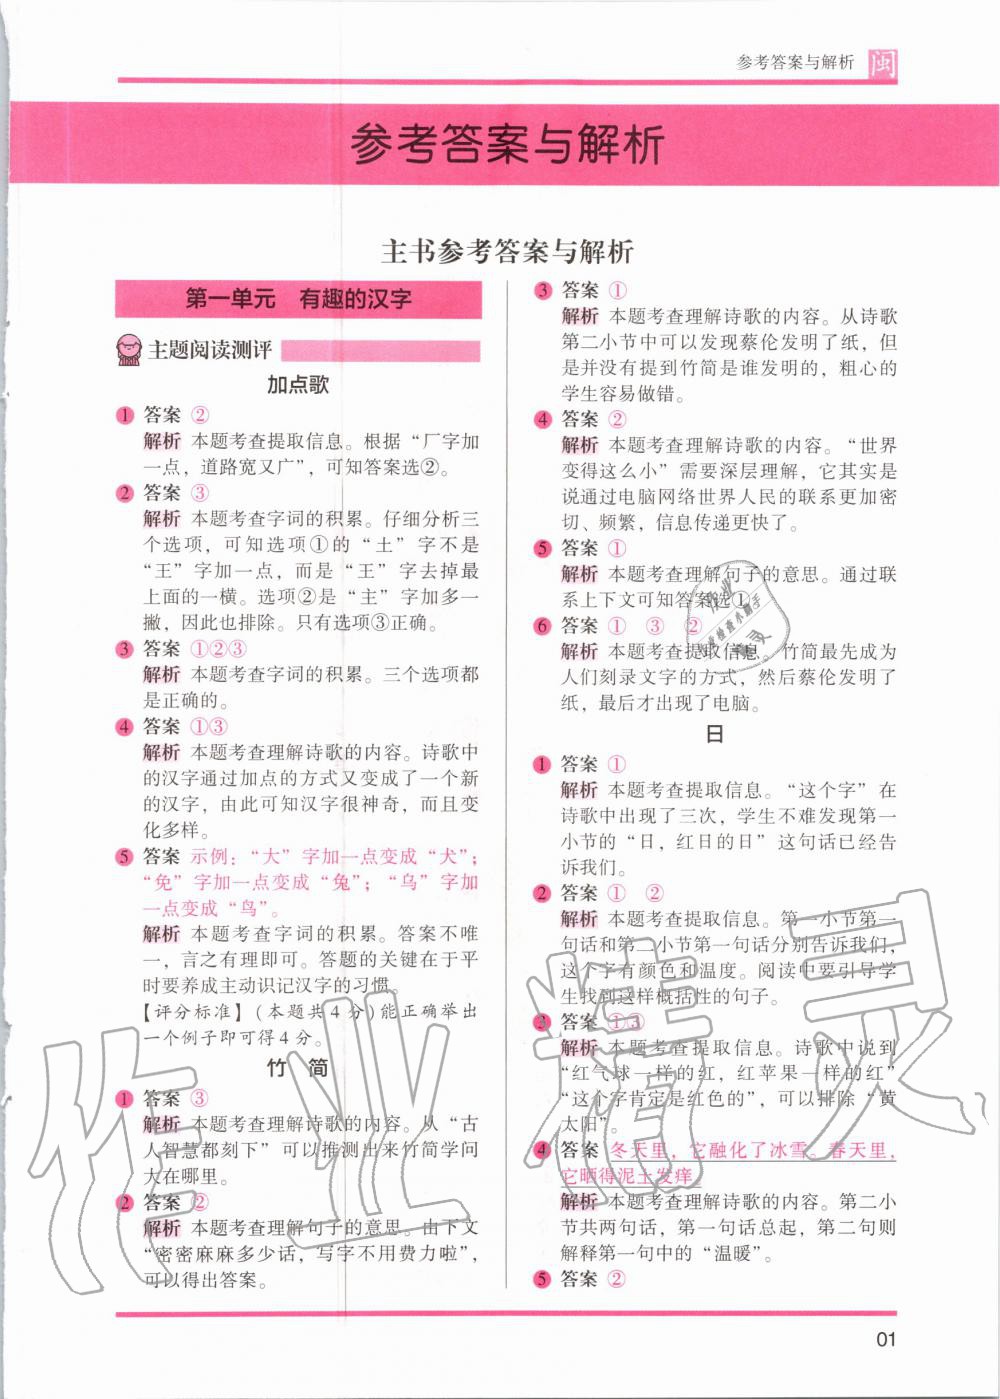 参考答案与解析 闽
参考答案与解析
主书参考答案与解析
第一单元 有趣的汉字
主题阅读测评
加点歌
1 答案 ②
解析 本题考查提取信息。根据“厂字加
一点，道路宽又广”，可知答案选②。
2 答案 ③
解析 本题考查字词的积累。仔细分析三
个选项，可知选项①的“土”字不是
“王”字加一点，而是“王”字去掉最
上面的一横。选项②是“主”字加多一
撇，因此也排除。只有选项③正确。
3 答案 ①②③
解析 本题考查字词的积累。三个选项都
是正确的。
4 答案 ①③
解析 本题考查理解诗歌的内容。诗歌中
的汉字通过加点的方式又变成了一个新
的汉字，由此可知汉字很神奇，而且变
化多样。
5 答案 示例：“大”字加一点变成“犬”；
“免”字加一点变成“兔”；“乌”字加
一点变成“鸟”。
解析 本题考查字词的积累。答案不唯
一，言之有理即可。答题的关键在于平
时要养成主动识记汉字的习惯。
【评分标准】(本题共4分)能正确举出
一个例子即可得4分。
竹 简
1 答案 ③
解析 本题考查理解诗歌的内容。从“古
人智慧都刻下”可以推测出来竹简学问
大在哪里。
2 答案 ②
解析 本题考查理解句子的意思。由下文
“密密麻麻多少话，写字不用费力啦”，
可以得出答案。
3 答案 ①
解析 本题考查理解诗歌的内容。从诗歌
第二小节中可以发现蔡伦发明了纸，但
是并没有提到竹简是谁发明的，粗心的
学生容易做错。
4 答案 ②
解析 本题考查理解诗歌的内容。“世界
变得这么小”需要深层理解，它其实是
说通过电脑网络世界人民的联系更加密
切、频繁，信息传递更快了。
5 答案 ①
解析 本题考查理解句子的意思。通过联
系上下文可知答案选①。
6 答案 ① ③ ②
解析 本题考查提取信息。竹简最先成为
人们刻录文字的方式，然后蔡伦发明了
纸，最后才出现了电脑。
日
1 答案 ①
解析 本题考查提取信息。“这个字”在
诗歌中出现了三次，学生不难发现第一
小节的“日，红日的日”这句话已经告
诉我们。
2 答案 ① ②
解析 本题考查提取信息。第一小节第一
句话和第二小节第一句话分别告诉我们，
这个字有颜色和温度。阅读中要引导学
生找到这样概括性的句子。
3 答案 ①③
解析 本题考查提取信息。诗歌中说到
“红气球一样的红，红苹果一样的红”
“这个字肯定是红色的”，可以排除“黄
太阳”。
4 答案 冬天里，它融化了冰雪。春天里，
它晒得泥土发痒
解析 本题考查理解诗歌的内容。第二小
节共两句话，第一句话总起，第二句则
解释第一句中的“温暖”。
5 答案 ②
01
作业精灵